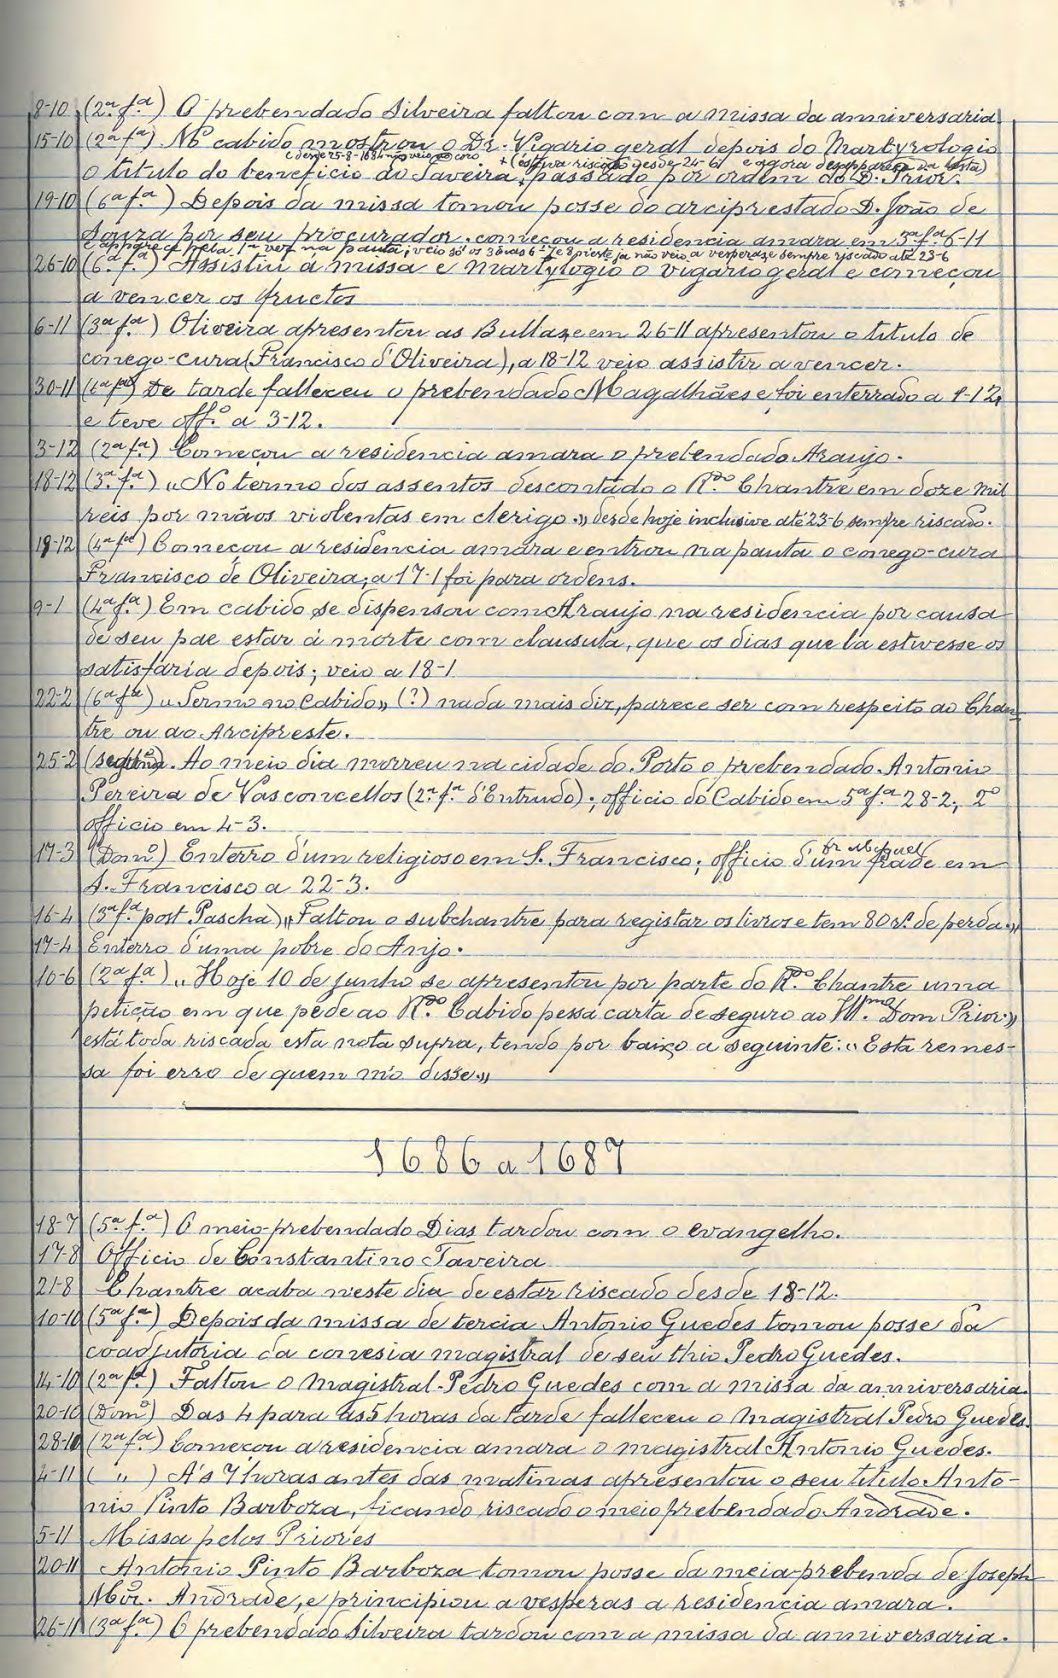 8-10 (2ª fª) O prebendado Silveira faltou com a missa da anniversaria.
15-10 (2ª fª) No cabido mostrou o Dr. Vigario geral depois do Martyrologio
(desde 25-8-1684 não veio ao coro + (estava riscado desde 24-6 e agora desapparece da lista)
o titulo do beneficio do Taveira, passado por ordem do D. Prior.
19-10 (6ª fª) Depois da missa tomou posse do arciprestado D. João de
Souza por seu procurador. começou a residencia amara em 5ª fª 6-11
e apparece pela 1ª vez na pauta; veio só os 3 dias 6-7 e 8; n'este já não veio a vesperas e sempre riscado até 23-6
26-10 (6ª fª) Assistiu á missa e martylogio o vigario geral e começou
a vencer os fructos
6-11 (3ª fª) Oliveira apresentou as Bullas, e em 26-11 apresentou o titulo de
conego-cura (Francisco d'Oliveira), a 18-12 veio assistir a vencer.
30-11 (6ª fª) De tarde falleceu o prebendado Magalhães e foi enterrado a 1-12,
e teve offº. a 3-12.
3-12 (2ª fª) Começou a residencia amara o prebendado Araujo.
18-12 (3ª fª) "No termo dos assentos descontado o Rdo. Chantre em doze mil
reis por mãos violentas em clerigo." desde hoje inclusive até 23-6 sempre riscado.
19-12 (4ª fª) Começou a residencia amara e entrou na pauta o conego-cura
Francisco de Oliveira; a 17-1 foi para ordens.
9-1 (4ª fª) Em cabido se dispensou com Araujo na residencia por causa
de seu pae estar á morte com clausula, que os dias que lá estivesse os
satisfaria depois; veio a 18-1
22-2 (6ª fª) "Sermo no Cabido" (?) nada mais diz, parece ser com respeito ao Chan-
tre ou ao Arcipreste.
25-2 (segunda). Ao meio dia morreu na cidade do Porto o prebendado Antonio
Pereira de Vasconcellos (2ª fª d'Entrudo); officio do Cabido em 5ª fª 28-2; 2º
officio em 4-3.
fr. Miguel
17-3 (Domº) Enterro d'um religioso em S. Francisco; officio d'um frade em
S. Francisco a 22-3.
16-4 (3ª fª post Pascha) "Faltou o subchantre para registar os livros e tem 80 rs. de perda."
17-4 Enterro d'uma pobre do Anjo.
10-6 (2ª fª) "Hoje 10 de junho se apresentou por parte do Rdo. Chantre uma
petição em que pede ao Rdo. Cabido pessa carta de seguro ao Illmo. Dom Prior."
está toda riscada esta nota supra, tendo por baixo a seguinte: "Esta remes-
sa foi erro de quem m'o disse."
1686 a 1687
18-7 (5ª fª) O meio-prebendado Dias tardou com o evangelho.
17-8 Officio de Constantino Taveira
21-8 Chantre acaba neste dia de estar riscado desde 18-12.
10-10 (5ª fª) Depois da missa de tercia Antonio Guedes tomou posse da
coadjutoria da conesia magistral de seu thio Pedro Guedes.
14-10 (2ª fª) Faltou o Magistral Pedro Guedes com a missa da anniversaria.
20-10 (Domº) Das 4 para as 5 horas da tarde falleceu o Magistral Pedro Guedes.
28-10 (2ª fª) Começou a residencia amara o magistral Antonio Guedes.
4-11 ( " ) A's 7 horas antes das matinas apresentou o seu titulo Anto-
nio Pinto Barboza, ficando riscado o meio prebendado Andrade.
5-11 Missa pelos Priores
20-11 Antonio Pinto Barboza tomou posse da meia-prebenda de Joseph
Mõr. Andrade, e principiou a vesperas a residencia amara.
26-11 (3ª fª) O prebendado Silveira tardou com a missa da anniversaria.